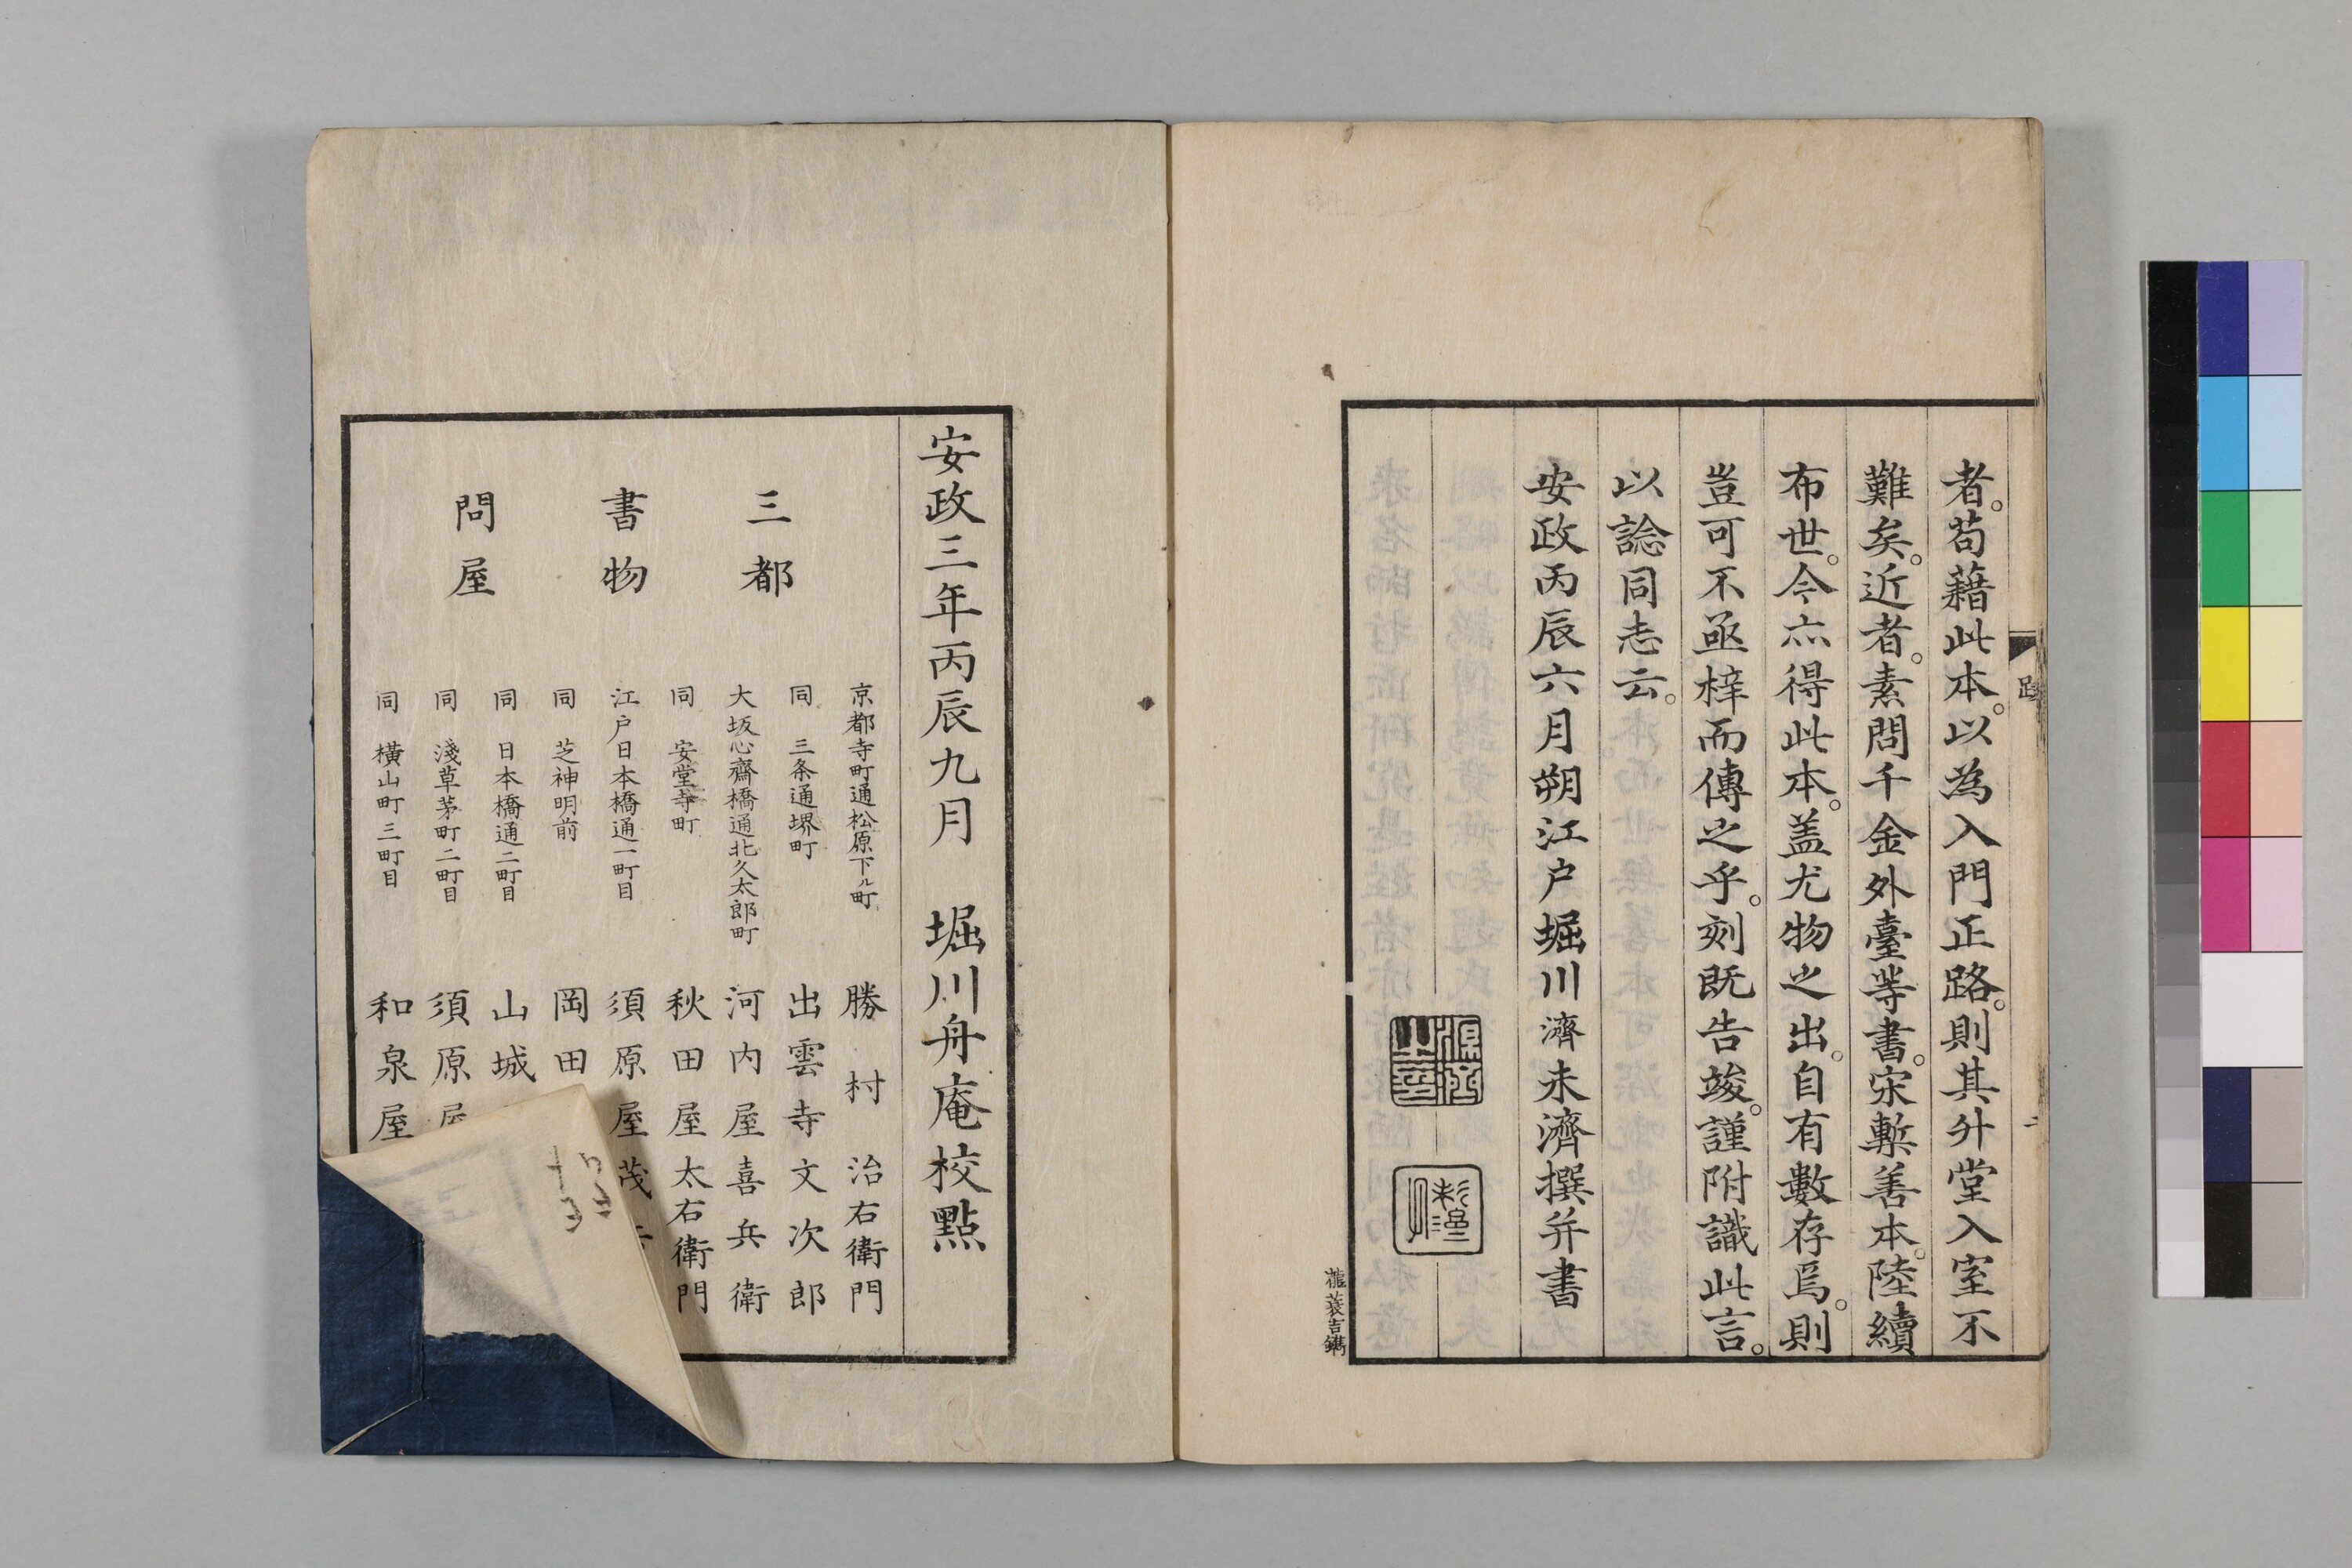 者。苟藉此本。以為入門正路。則其升堂入室不
難矣。近者。素問千金外臺等書。宋槧善本。陸續
布世。今亦得此本。盖尤物之出。自有數存焉。則
豈可不亟梓而傳之乎。刻既告竣。謹附識此言。
以諗同志云。
安政丙辰六月朔江戸堀川濟未濟撰并書
跋
二
安政三年丙辰九月 堀川舟庵校點
三都
書物
問屋
京都寺町通松原下ル町 勝村治右衛門
同 三条通堺町 出雲寺文次郎
大坂心齋橋通北久太郎町 河内屋喜兵衛
同 安堂寺町 秋田屋太右衛門
江戸日本橋通一町目 須原屋茂
同 芝神明前 岡田
同 日本橋通二町目 山城
同 淺草茅町二町目 須原屋
同 橫山町三町目 和泉屋